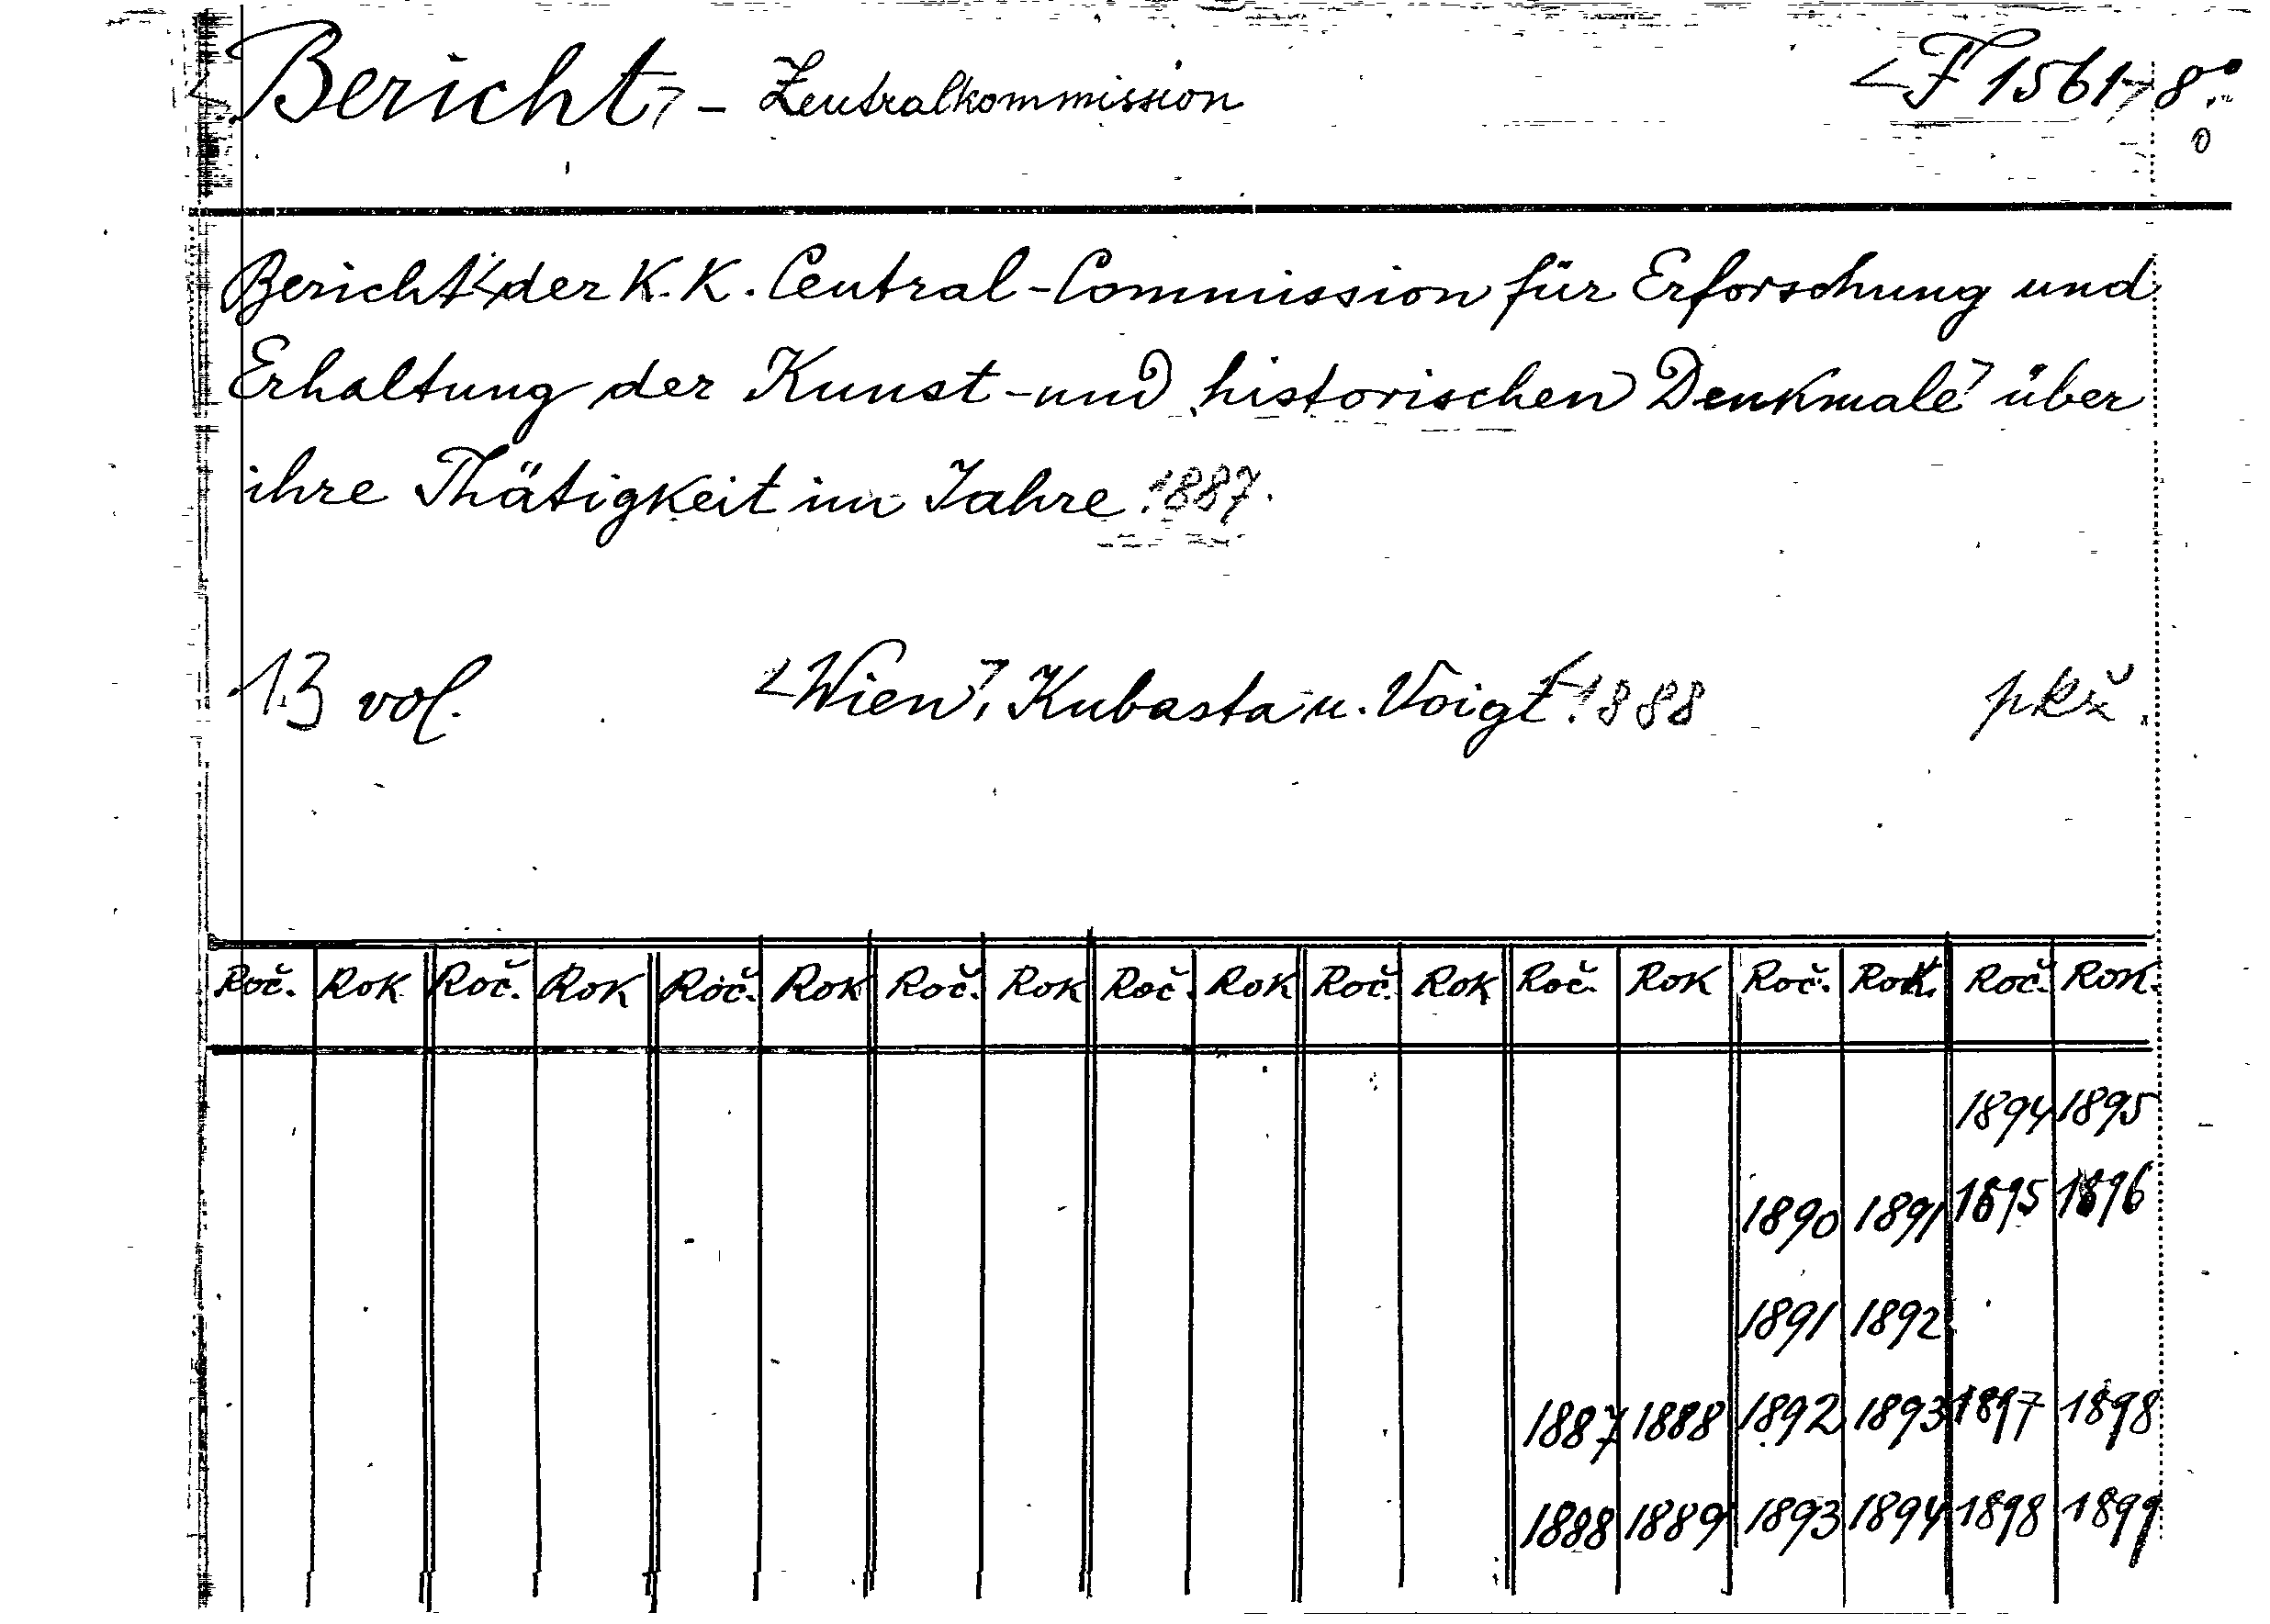 <Bericht> - Zentralkommission <F 1561> 8°
Bericht< der K. K. Central-Commission für Erforschung und
Erhaltung der Kunst- und historischen Denkmale> über
ihre Thätigkeit im Jahre 1887.
13 vol. <Wien>, Kubasta u. Voigt 1888 pkž.
Roč. Rok Roč. Rok Roč. Rok Roč. Rok Roč. Rok Roč. Rok Roč. Rok Roč. Rok. Roč. Rok.
1894 1895
1890 1891 1895 1896
1891 1892
1887 1888 1892 1893 1897 1898
1888 1889 1893 1894 1898 1899